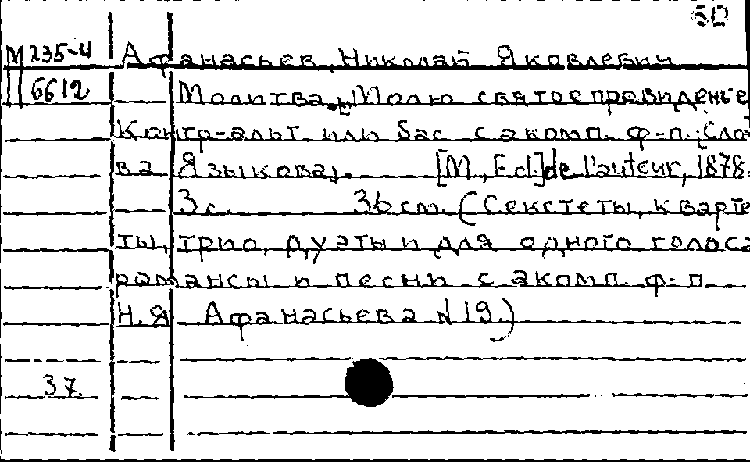 БД
М 235-4 Афанасьев, Николай Яковлевич
6612 Молитва. "Молю святое провиденье"
Контр-альт или бас с акомп. ф-п. (Сло-
ва Языкова). [М., Ed.] de l'auteur, 1878.
3 с. 36 см. (Секстеты, кварте-
ты, трио, дуэты и для одного голоса
романсы и песни с акомп. ф-п.
Н. Я. Афанасьева № 19.)
37.